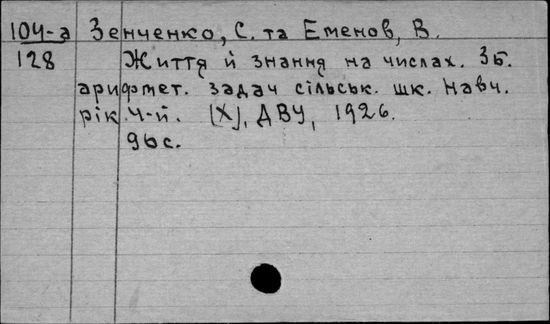 104-а Зенченко, С. та Еменов, В.
128 Життя й знання на числах. Зб.
арифмет. задач сільськ. шк. Навч.
рік 4-й. [Х], ДВУ, 1926.
96с.